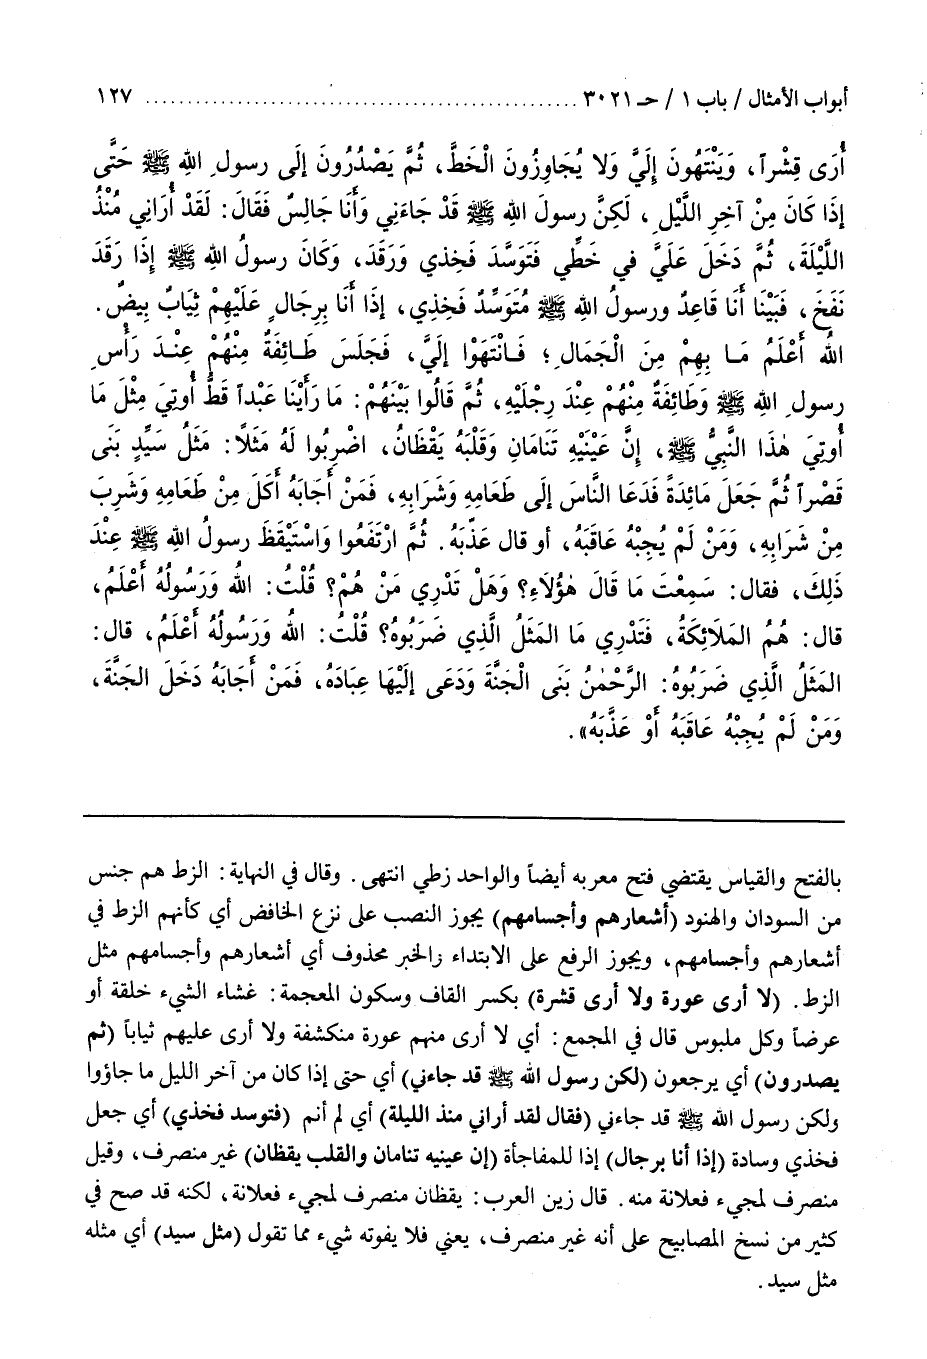 أبواب الأمثال / باب ١ / حـ ٣٠٢١ ........................................ ١٢٧
أُرَى قِشْراً، وَيَنْتَهُونَ إِلَيَّ وَلا يُجَاوِزُونَ الْخَطَّ، ثُمَّ يَصْدُرُونَ إِلَى رسولِ اللهِ ﷺ حَتَّى
إذَا كَانَ مِنْ آخِرِ اللَّيْلِ، لَكِنَّ رسولَ اللهِ ﷺ قَدْ جَاءَنِي وَأَنَا جَالِسٌ فَقَالَ: لَقَدْ أُرَانِي مُنْذُ
اللَّيْلَةَ، ثُمَّ دَخَلَ عَلَيَّ في خَطِّي فَتَوَسَّدَ فَخِذي وَرَقَدَ، وَكَانَ رسولُ اللهِ ﷺ إِذَا رَقَدَ
نَفَخَ، فَبَيْنَا أَنَا قَاعِدٌ ورسولُ اللهِ ﷺ مُتَوَسِّدٌ فَخِذِي، إذَا أَنَا بِرِجَالٍ عَلَيْهِمْ ثِيَابٌ بِيضٌ.
اللهُ أَعْلَمُ مَا بِهِمْ مِنَ الْجَمَالِ؛ فَانْتَهَوْا إلَيَّ، فَجَلَسَ طَائِفَةٌ مِنْهُمْ عِنْدَ رَأْسِ
رسولِ اللهِ ﷺ وَطَائِفَةٌ مِنْهُمْ عِنْدَ رِجْلَيْهِ، ثُمَّ قَالُوا بَيْنَهُمْ: مَا رَأَيْنَا عَبْداً قَطُّ أُوتِيَ مِثْلَ مَا
أُوتِيَ هٰذَا النَّبِيُّ ﷺ، إِنَّ عَيْنَيْهِ تَنَامَانِ وَقَلْبَهُ يَقْظَانُ، اضْرِبُوا لَهُ مَثَلًا: مَثَلُ سَيِّدٍ بَنَى
قَصْراً ثُمَّ جَعَلَ مَائِدَةً فَدَعَا النَّاسَ إلى طَعَامِهِ وَشَرَابِهِ، فَمَنْ أَجَابَهُ أَكَلَ مِنْ طَعَامِهِ وَشَرِبَ
مِنْ شَرَابِهِ، وَمَنْ لَمْ يُجِبْهُ عَاقَبَهُ، أو قال عَذَّبَهُ. ثُمَّ ارْتَفَعُوا وَاسْتَيْقَظَ رسولُ اللهِ ﷺ عِنْدَ
ذَلِكَ، فقال: سَمِعْتَ مَا قَالَ هٰؤُلَاءِ؟ وَهَلْ تَدْرِي مَنْ هُمْ؟ قُلْتُ: اللهُ وَرَسُولُهُ أَعْلَمُ،
قال: هُمُ المَلَائِكَةُ، فَتَدْرِي مَا المَثَلُ الَّذِي ضَرَبُوهُ؟ قُلْتُ: اللهُ وَرَسُولُهُ أَعْلَمُ، قال:
المَثَلُ الَّذِي ضَرَبُوهُ: الرَّحْمٰنُ بَنَى الْجَنَّةَ وَدَعَى إِلَيْهَا عِبَادَهُ، فَمَنْ أَجَابَهُ دَخَلَ الجَنَّةَ،
وَمَنْ لَمْ يُجِبْهُ عَاقَبَهُ أَوْ عَذَّبَهُ».
بالفتح والقياس يقتضي فتح معربه أيضاً والواحد زطي انتهى. وقال في النهاية: الزط هم جنس
من السودان والهنود (أشعارهم وأجسامهم) يجوز النصب على نزع الخافض أي كأنهم الزط في
أشعارهم وأجسامهم، ويجوز الرفع على الابتداء والخبر محذوف أي أشعارهم وأجسامهم مثل
الزط. (لا أرى عورة ولا أرى قشرة) بكسر القاف وسكون المعجمة: غشاء الشيء خلقة أو
عرضاً وكل ملبوس قال في المجمع: أي لا أرى منهم عورة منكشفة ولا أرى عليهم ثياباً (ثم
يصدرون) أي يرجعون (لكن رسول الله ﷺ قد جاءني) أي حتى إذا كان من آخر الليل ما جاؤوا
ولكن رسول الله ﷺ قد جاءني (فقال لقد أراني منذ الليلة) أي لم أنم (فتوسد فخذي) أي جعل
فخذي وسادة (إذا أنا برجال) إذا للمفاجأة (إن عينيه تنامان والقلب يقظان) غير منصرف، وقيل
منصرف لمجيء فعلانة منه. قال زين العرب: يقظان منصرف لمجيء فعلانة، لكنه قد صح في
كثير من نسخ المصابيح على أنه غير منصرف، يعني فلا يفوته شيء مما تقول (مثل سيد) أي مثله
مثل سيد.